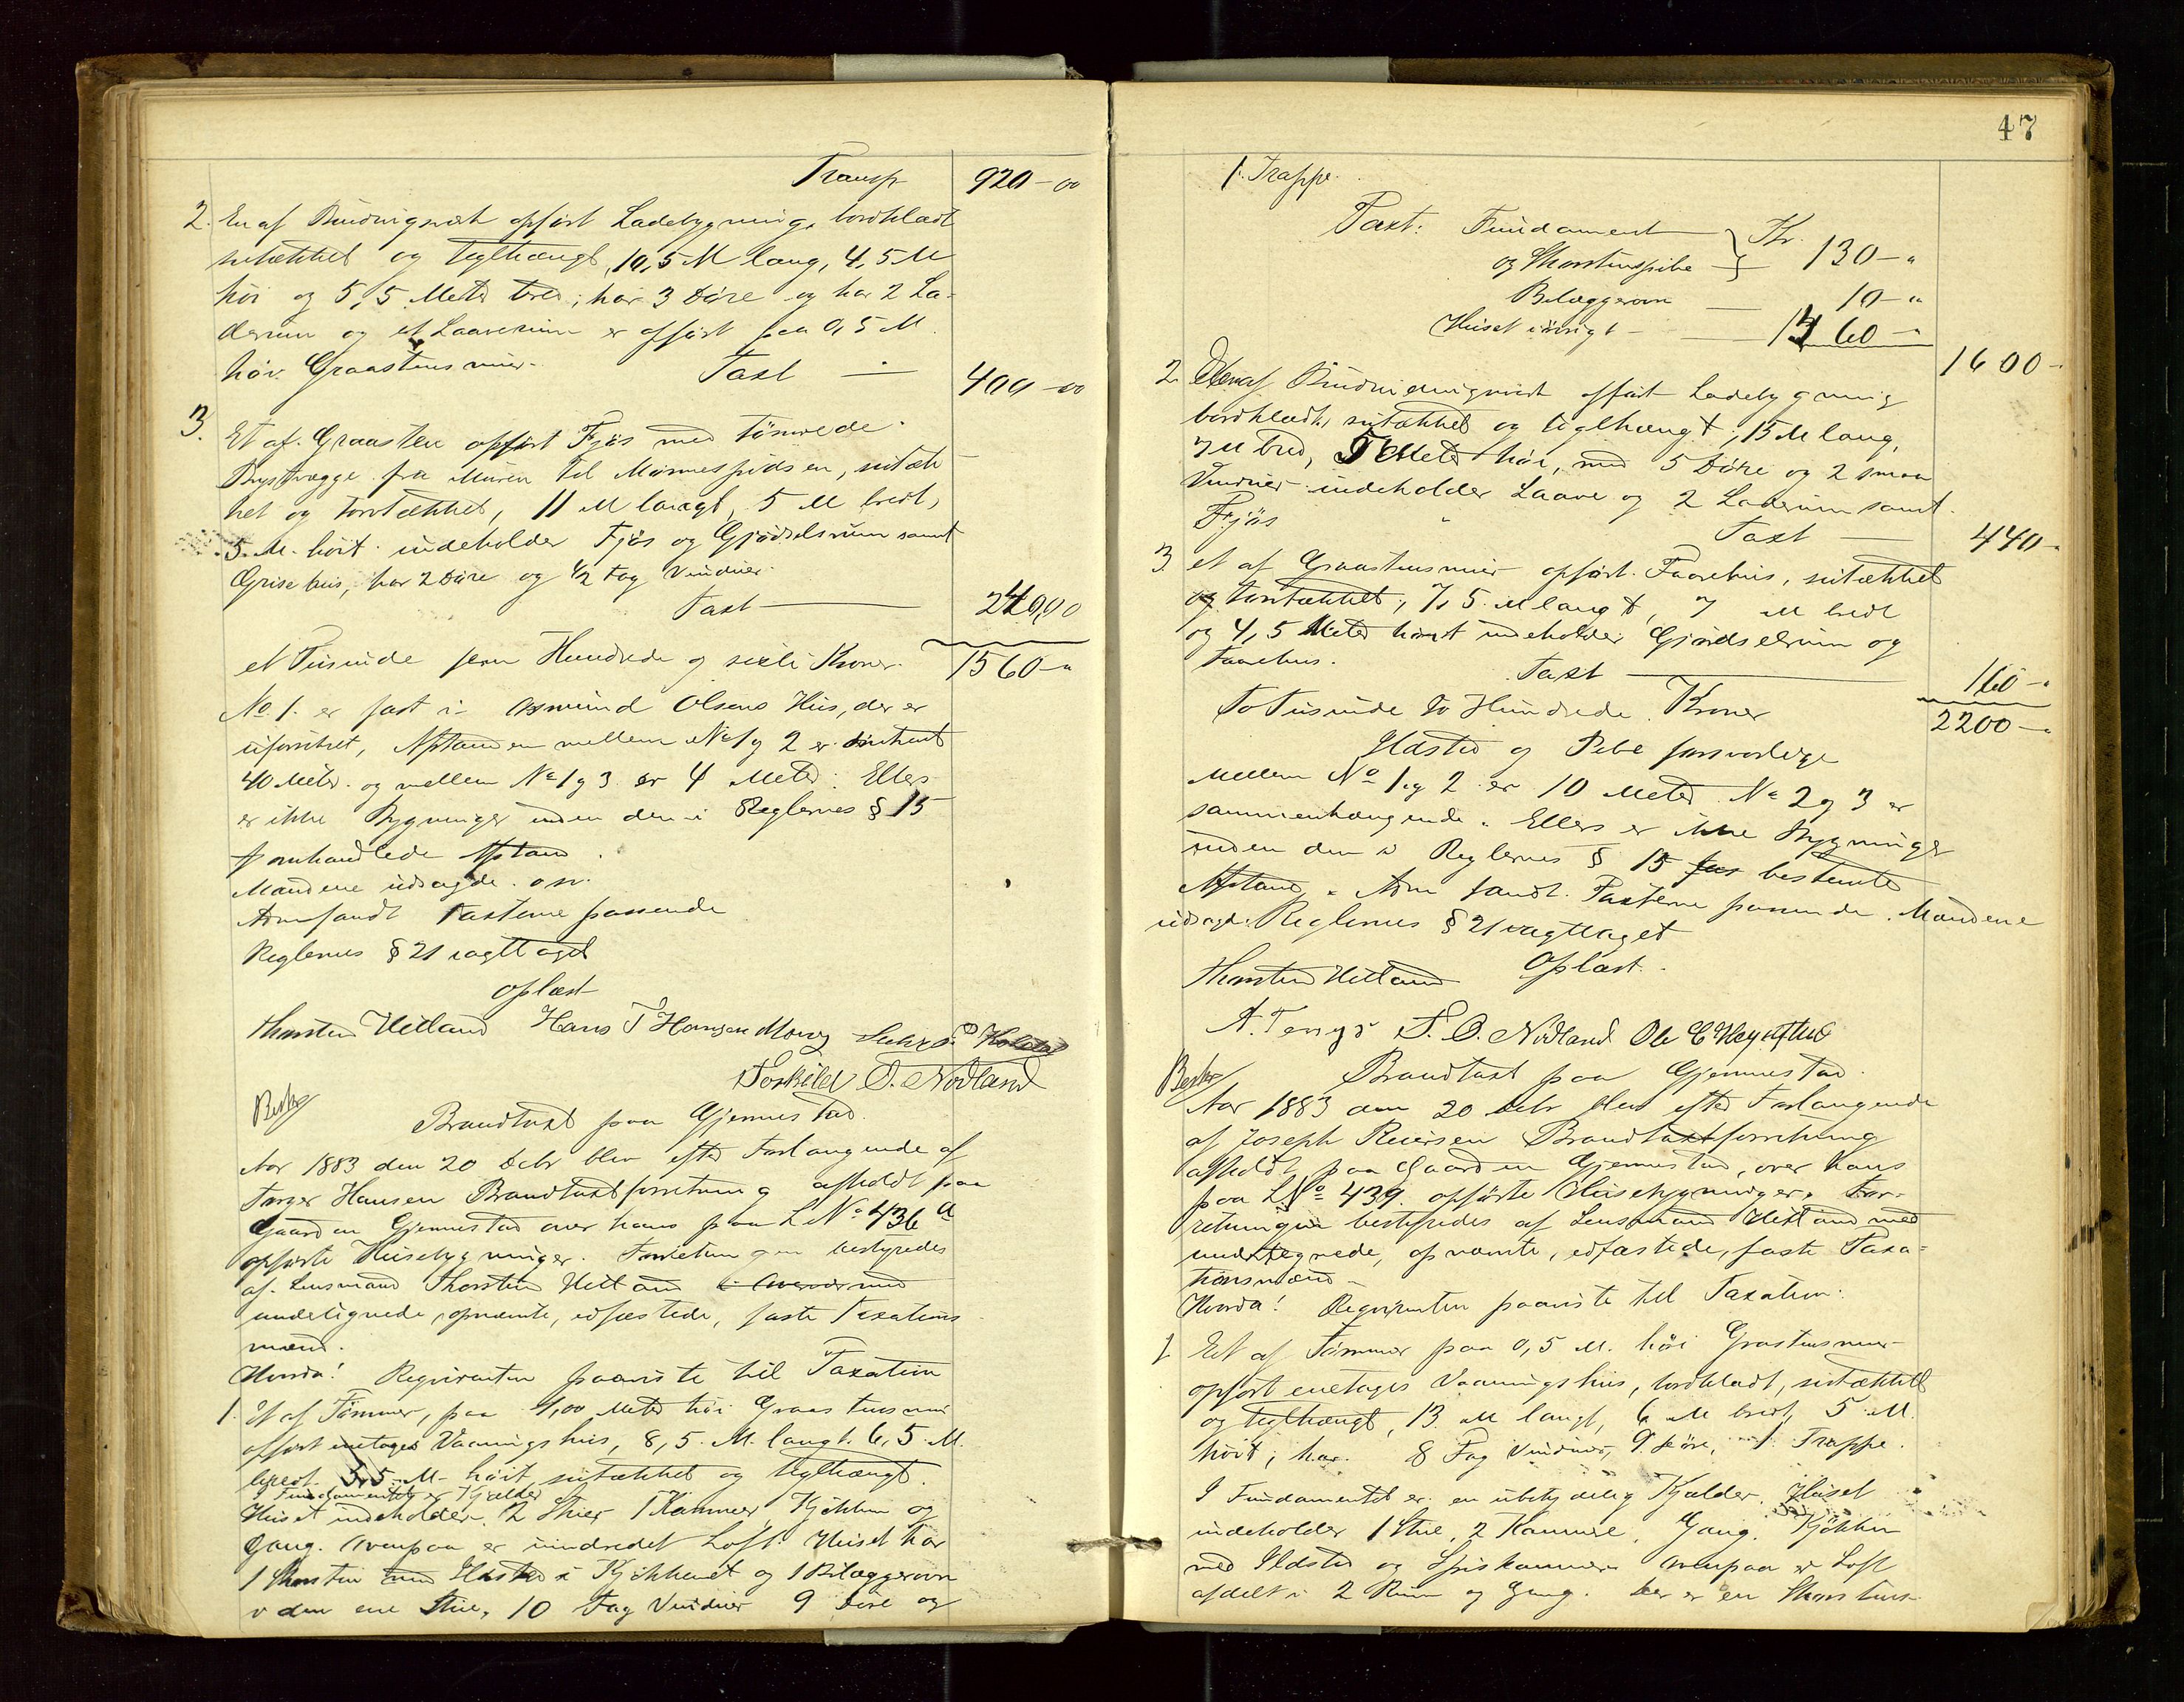 Transp 920-00
2. En af Bindingsværk opført Ladebygning, bordklædt
sutækket og teglhængt, 10,5 M lang, 4,5 M
høi og 5,5 Meter bred; har 3 Døre og har 2 La-
derum og et Laaverum er opført paa 0,5 M
høi Graastensmur. Taxt - 400-00
3. Et af Graasten opført Fjøs med tømrede
Brystvægge fra Muren til Mønnespidsen, sutæk
ket og torvtækket, 11 M langt, 5 M bredt,
5. M. høit indeholder Fjøs og Gjødselsrum samt
Grisehus, har 2 Døre og 1/2 Fag Vinduer.
Taxt 240,00
et Tusinde fem Hundrede og sexti Kroner. 1560-"
No. 1. er fast i Asmund Olsens Hus, der er
uforsikret, Afstanden mellem No 1 og 2 er omtrent
40 Meter. og mellem No 1 og 3 er 4 Meter. Ellers
er ikke Bygninger inden den i Reglernes § 15
omhandlede Afstand.
Mændene udsagde. o s v.
fandt Taxterne passende
Reglernes § 21 iagttaget
Oplæst
Thorsten Hetland Hans T Hansen
Torkild O. Nødland
Brandtaxt paa Gjermestad.
Aar 1883 den 20 Debr blev efter Forlangende af
Torger Hansen Brandtaxtforretning afholdt paa
Gaarden Gjermestad over hans paa L No 436 a
opførte Husebygninger. Forretningen bestyredes
af Lensmand Thorsten Hetland med
undertegnede, opnævnte, edfæstede, faste Taxations
mænd.
Hvorda! Reqvirenten paaviste til Taxation
1. Et af Tømmer, paa 1,00 Meter høi Graastensmur
opført enetages Vaaningshus, 8,5. M. langt. 6,5. M.
bredt 5,5 M- høit, sutækket og teglhængt.
I Fundamentet er Kjælder
Huset indeholder. 2 Stuer 1 Kammer, Kjøkken og
Gang. Ovenpaa er uindredet Loft. Huset har
1 Skorsten med Ildsted i Kjøkkenet og 1 Bilæggerovn
i den ene Stue, 10 Fag Vinduer 9 Døre og
47
1. Trappe.
Taxt: Fundament
og Skorstenspibe } Kr. 130-"
Bilæggerovn 10-"
Huset iøvrigt - 1460-" 1600-
2. En af Bindingsværk opført Ladebygning
bordklædt, sutækket og teglhængt, 15 M lang,
7 M bred, 5 Meter høi, med 5 Døre og 2 smaa
Vinduer indeholder Laave og 2 Laderum samt.
Fjøs Taxt 440-
3. et af Graastensmur opført. Faarehus, sutækket
og torvtækket, 7,5. M langt, 7 M bredt
og 4,5 Meter høit indeholder Gjødselrum og
Faarehus. Taxt 160-"
To Tusinde to Hundrede Kroner 2200-"
Ildsted og Pibe forsvarlige
Mellem No 1 og 2 er 10 Meter. No 2 og 3 er
sammenhængende. Ellers er ikke Bygninger
inden den i Reglernes § 15 bestemte
Afstand. fandt. Taxterne passende. Mændene
udsagde. Reglernes § 21 iagttaget
Oplæst.
Thorsten Hetland
A. Tengs T. O. Nødland
Brandtaxt paa Gjermestad.
Aar 1883 den 20 Debr blev efter Forlangende
af Joseph Reiersen Brandtaxtforretning
afholdt paa Gaarden Gjermestad, over hans
paa L No 439. opførte Husebygninger. For-
retningen bestyredes af Lensmand Hetland med
undertegnede, opnævnte, edfæstede, faste Taxa-
tionsmænd -
Hvorda! Reqvirenten paaviste til Taxation:
1 Et af Tømmer paa 0,5 M. høi Grastensmur
opført enetages Vaaningshus, bordklædt, sutækket
og teglhængt, 13 M langt, 6 M bredt, 5 M.
høit; har. 8 Fag Vinduer, 9 Døre, 1 Trappe.
I Fundamentet er en ubetydelig Kjælder. Huset
indeholder 1 Stue, 2 Kammere, Gang, Kjøkken
med Ildsted og Spiskammer. Ovenpaa er Loft
afdelt i 2 Rum og Gang. Der er en Skorstens-